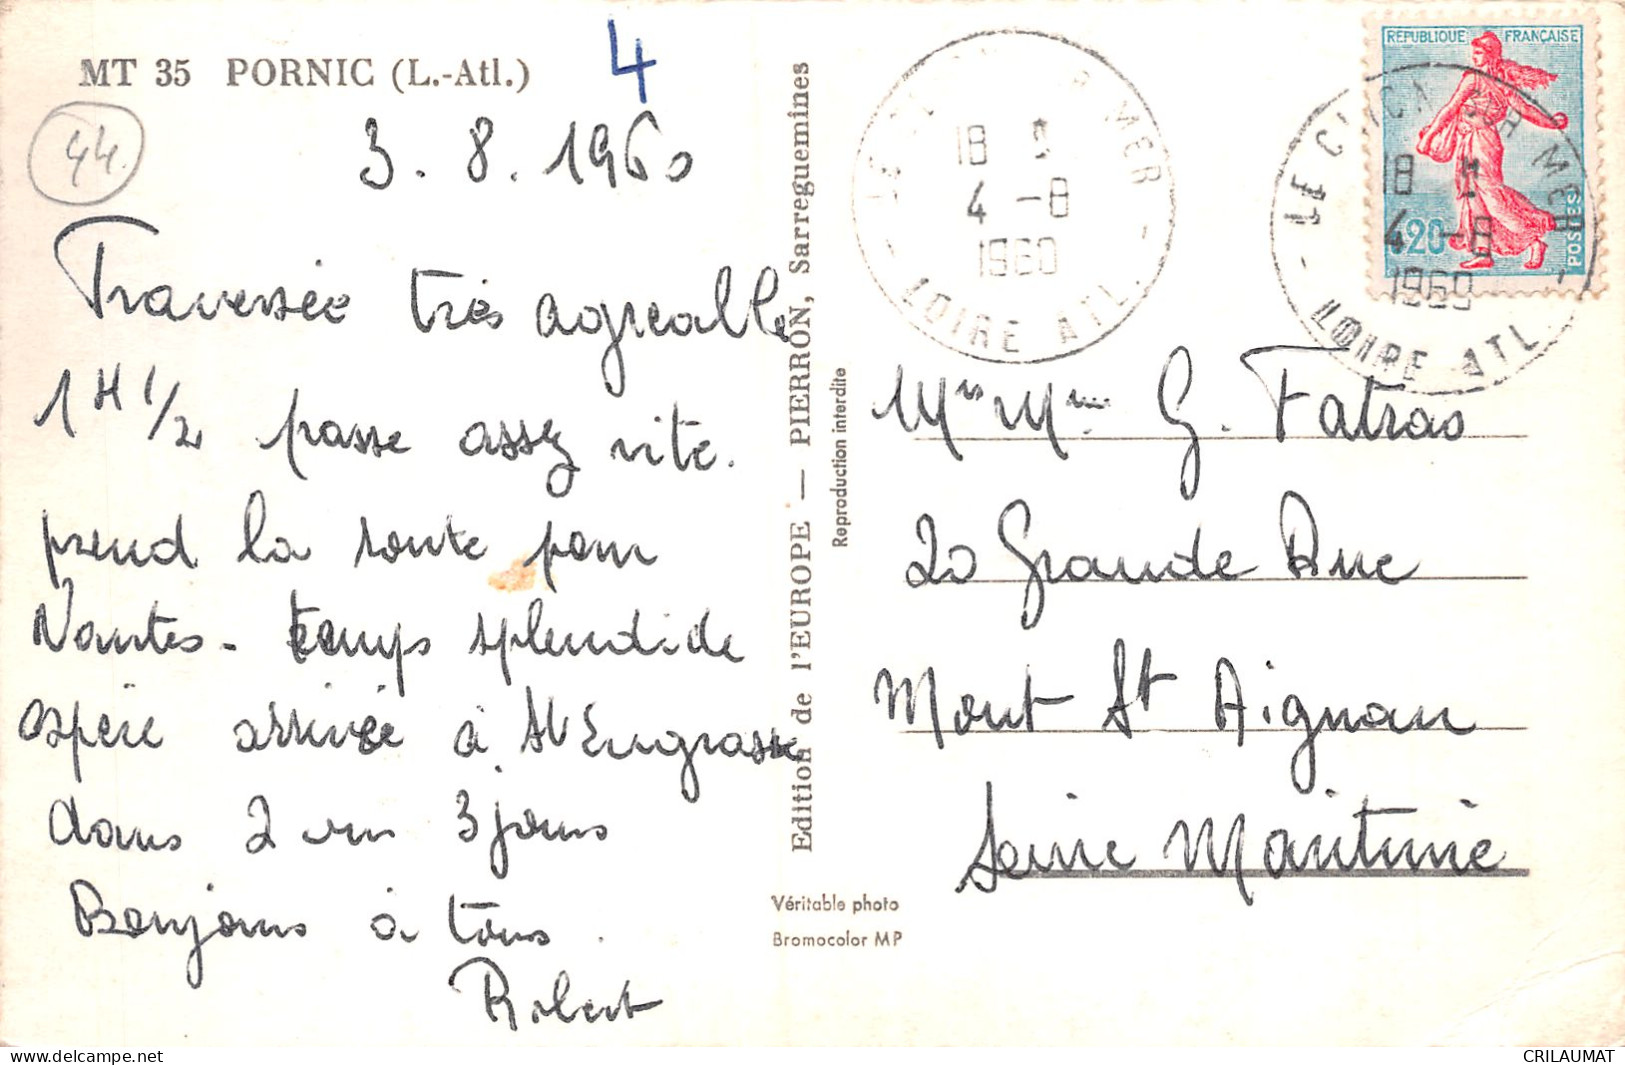 MT 35 PORNIC (L.-Atl.)
4
44.
3. 8. 1960
Traversée très agréable
1 H 1/2 passe assez vite.
prend la route pour
Nantes - temps splendide
espère arrivée à St Engrasse
dans 2 ou 3 jours
Bonjours à tous.
Robert
Edition de l'EUROPE — PIERRON, Sarreguemines
Reproduction interdite
Véritable photo
Bromocolor MP
MER
18
4 -8
1960
- LOIRE ATL. -
RÉPUBLIQUE FRANÇAISE
0.20
POSTES
LE MER
18 H
4 -8
1960
- LOIRE ATL. -
Mrs Mme G. Fatras
20 Grande Rue
Mont St Aignan
Seine Maritime
delcampe.net
CRILAUMAT